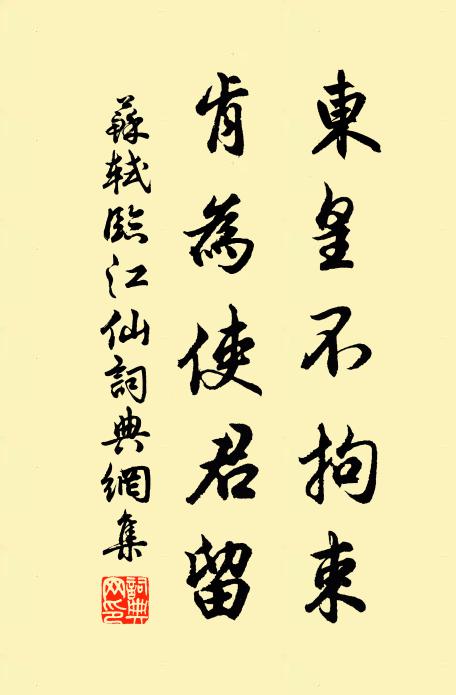 東皇不拘束
肯為使君留
蘇軾臨江仙詞典網集
詞典網印